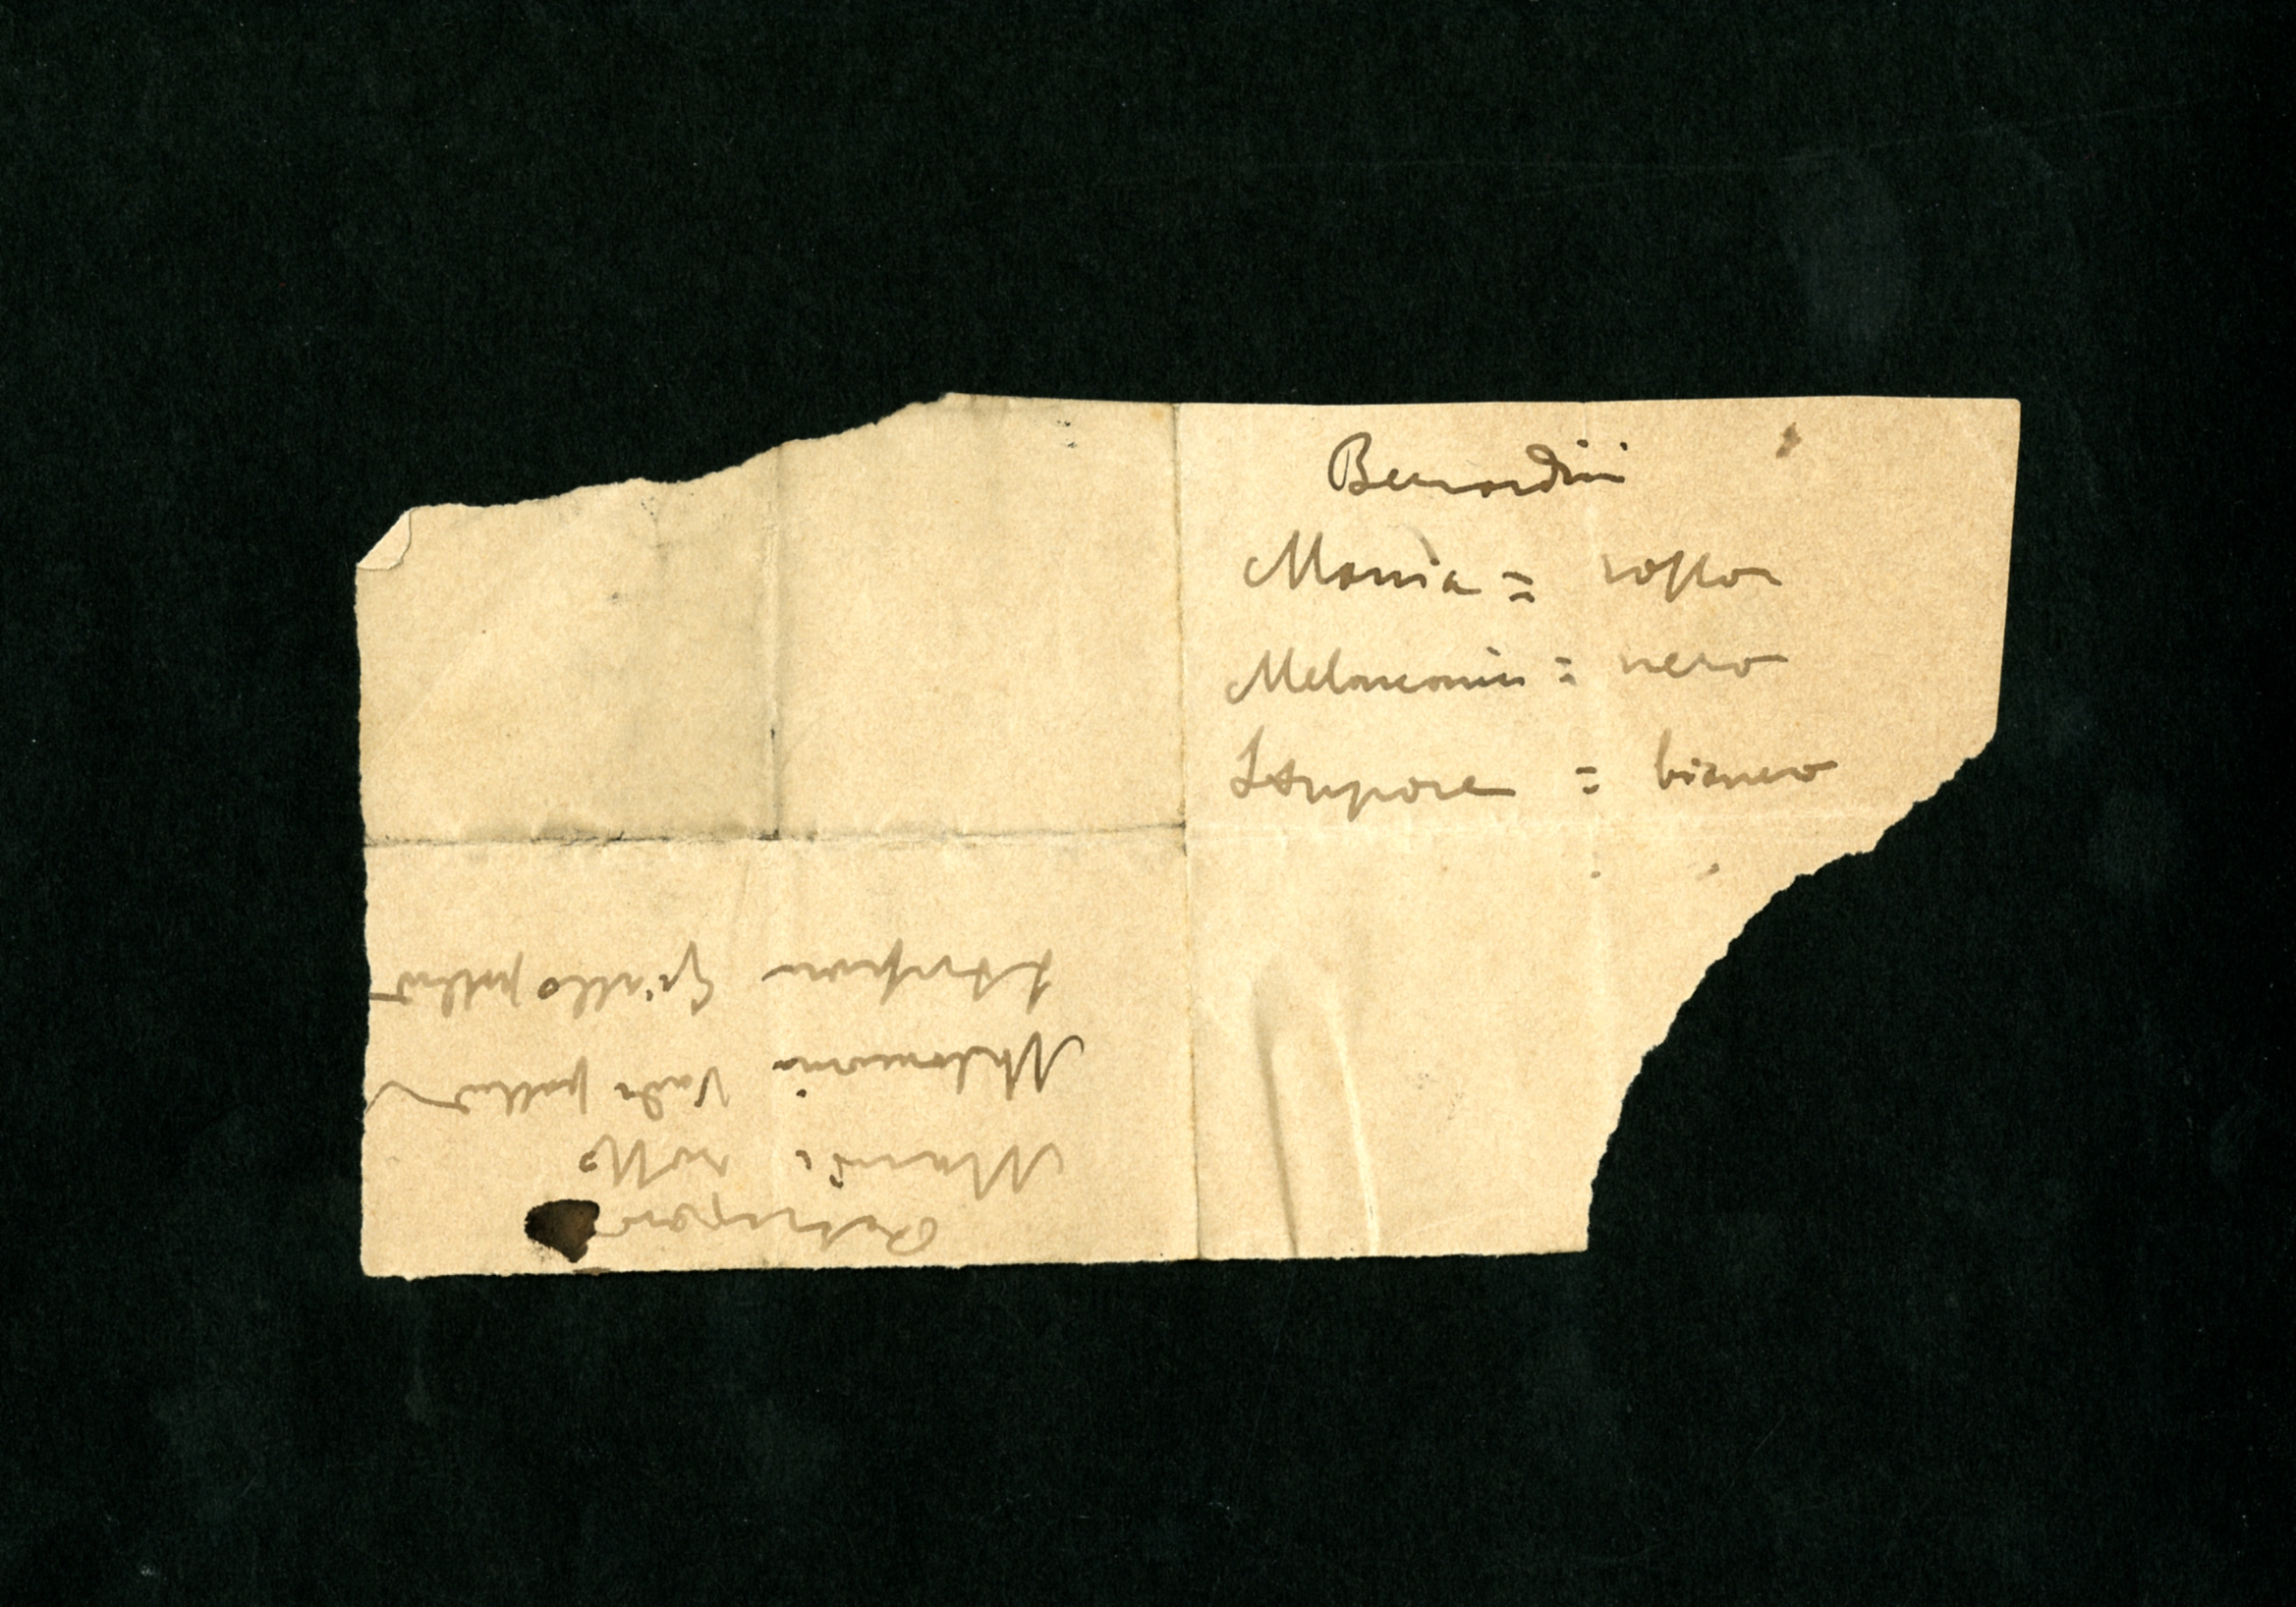 Bernardini
Mania = rosso
Melanconia = nero
Stupore = bianco
Mania rosso
Melanconia Verde pallido
Stupore Giallo pallido